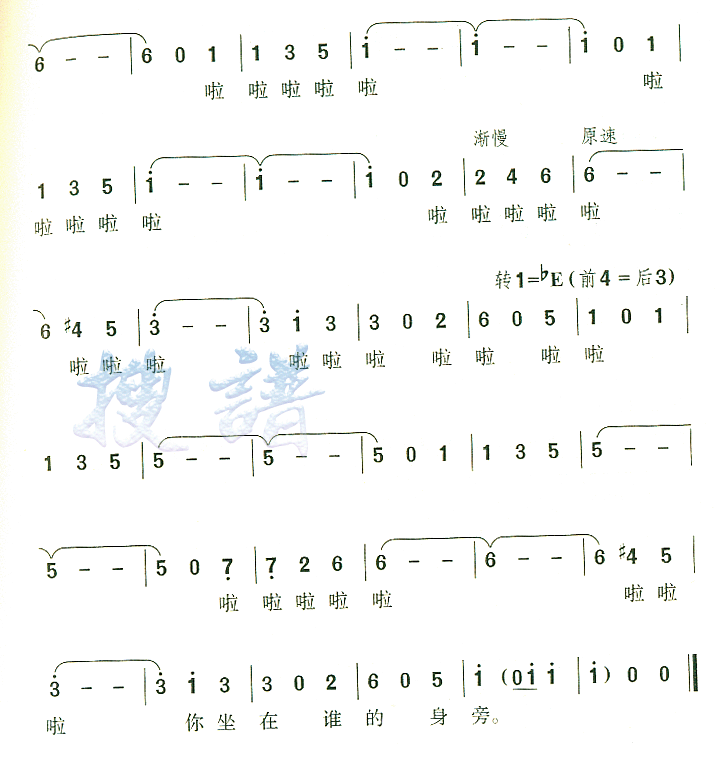 6 - - | 6 0 1 | 1 3 5 | i - - | i - - | i 0 1 |
啦 啦 啦 啦 啦 啦
渐慢 原速
1 3 5 | i - - | i - - | i 0 2 | 2 4 6 | 6 - - |
啦 啦 啦 啦 啦 啦 啦 啦 啦
转1=♭E(前4=后3)
6 ♯4 5 | 3̇ - - | 3̇ i 3 | 3 0 2 | 6 0 5 | 1 0 1 |
啦 啦 啦 啦 啦 啦 啦 啦 啦 啦
搜譜
1 3 5 | 5 - - | 5 - - | 5 0 1 | 1 3 5 | 5 - - |
5 - - | 5 0 7̣ | 7̣ 2 6 | 6 - - | 6 - - | 6 ♯4 5 |
啦 啦 啦 啦 啦 啦 啦
3̇ - - | 3̇ i 3 | 3 0 2 | 6 0 5 | i (0i i | i) 0 0 ‖
啦 你 坐 在 谁 的 身 旁。